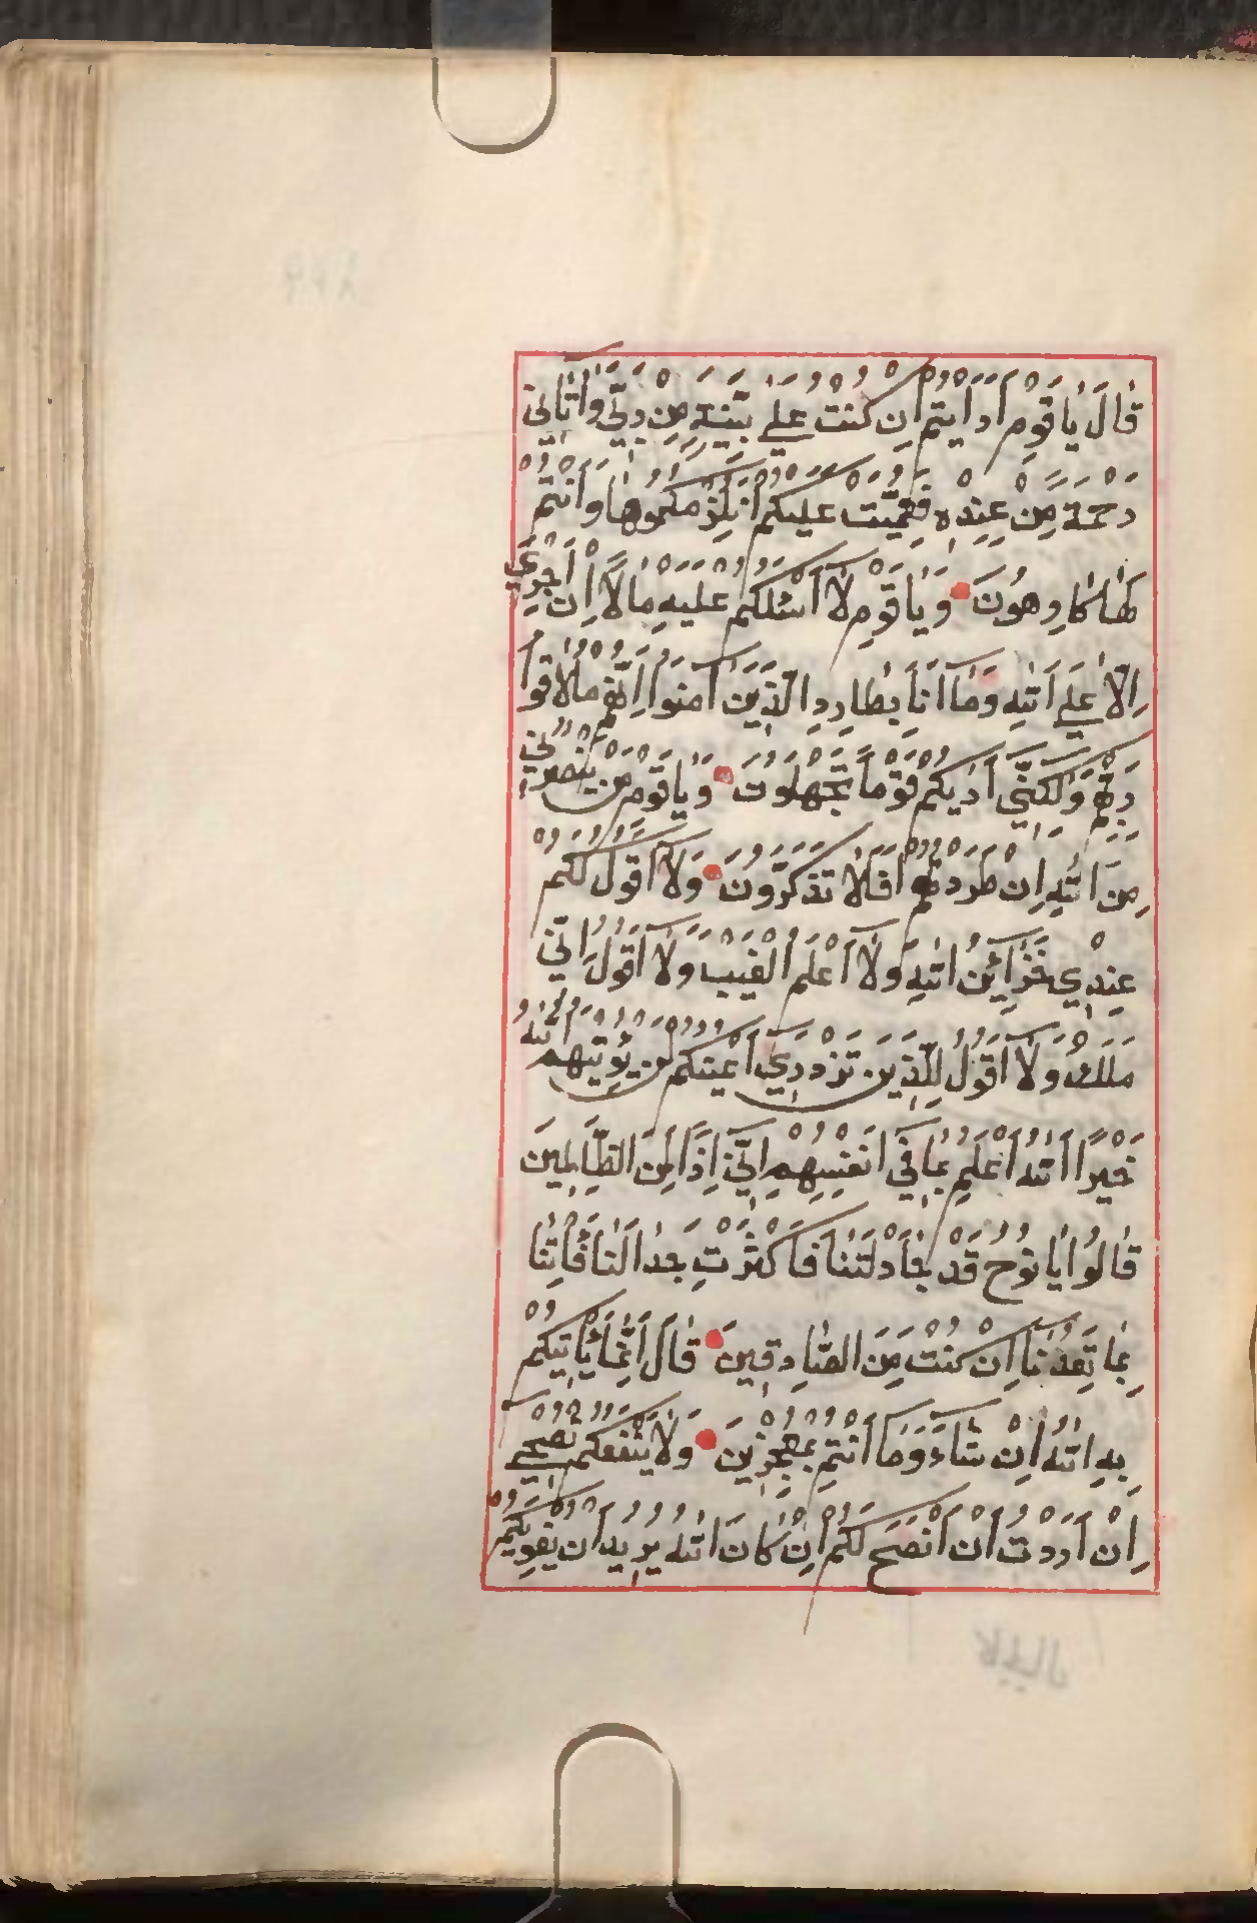 قَالَ يَا قَوْمِ أَرَأَيْتُمْ إِن كُنتُ عَلَى بَيِّنَةٍ مِن رَبِّي وَآتَانِي
رَحْمَةً مِّنْ عِندِهِ فَعُمِّيَتْ عَلَيْكُمْ أَنُلْزِمُكُمُوهَا وَأَنتُمْ
لَهَا كَارِهُونَ وَيَا قَوْمِ لَا أَسْئَلُكُمْ عَلَيْهِ مَالًا إِنْ أَجْرِيَ
إِلَّا عَلَى اللهِ وَمَا أَنَا بِطَارِدِ الَّذِينَ آمَنُوا إِنَّهُم مُلَاقُوا
رَبِّهِمْ وَلَكِنِّي أَرَيكُمْ قَوْمًا تَجْهَلُونَ وَيَا قَوْمِ مَن يَنْصُرُنِي
مِنَ اللهِ إِنْ طَرَدتُّهُمْ أَفَلَا تَذَكَّرُونَ وَلَا أَقُولُ لَكُمْ
عِنْدِي خَزَائِنُ اللهِ وَلَا أَعْلَمُ الْغَيْبَ وَلَا أَقُولُ إِنِّي
مَلَكٌ وَلَا أَقُولُ لِلَّذِينَ تَزْدَرِي أَعْيُنُكُمْ لَن يُؤْتِيَهُمُ اللهُ
خَيْرًا اللهُ أَعْلَمُ بِمَا فِي أَنْفُسِهِمْ إِنِّي إِذًا لَمِنَ الظَّالِمِينَ
قَالُوا يَا نُوحُ قَدْ جَادَلْتَنَا فَأَكْثَرْتَ جِدَالَنَا فَأْتِنَا
بِمَا تَعِدُنَا إِنْ كُنْتَ مِنَ الصَّادِقِينَ قَالَ إِنَّمَا يَأْتِيكُمْ
بِهِ اللهُ إِنْ شَاءَ وَمَا أَنْتُمْ بِمُعْجِزِينَ وَلَا يَنْفَعُكُمْ نُصْحِي
إِنْ أَرَدْتُ أَنْ أَنْصَحَ لَكُمْ إِنْ كَانَ اللهُ يُرِيدُ أَن يُغْوِيَكُمْ